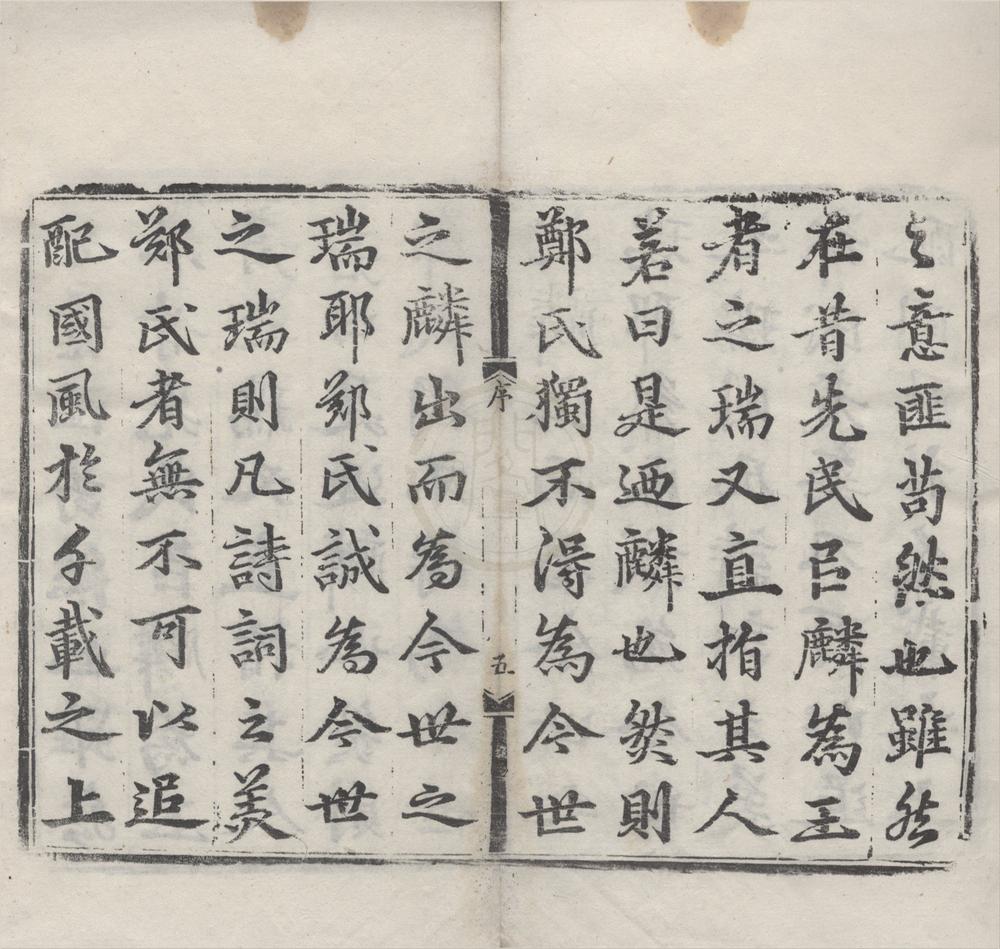 之意匪苟然也雖然
在昔先民㠯麟為王
者之瑞又直指其人
若曰是迺麟也然則
鄭氏獨不得為今世
序 五
之麟出而為今世之
瑞耶鄭氏誠為今世
之瑞則凡詩詞之美
鄭氏者無不可以追
配國風於千載之上